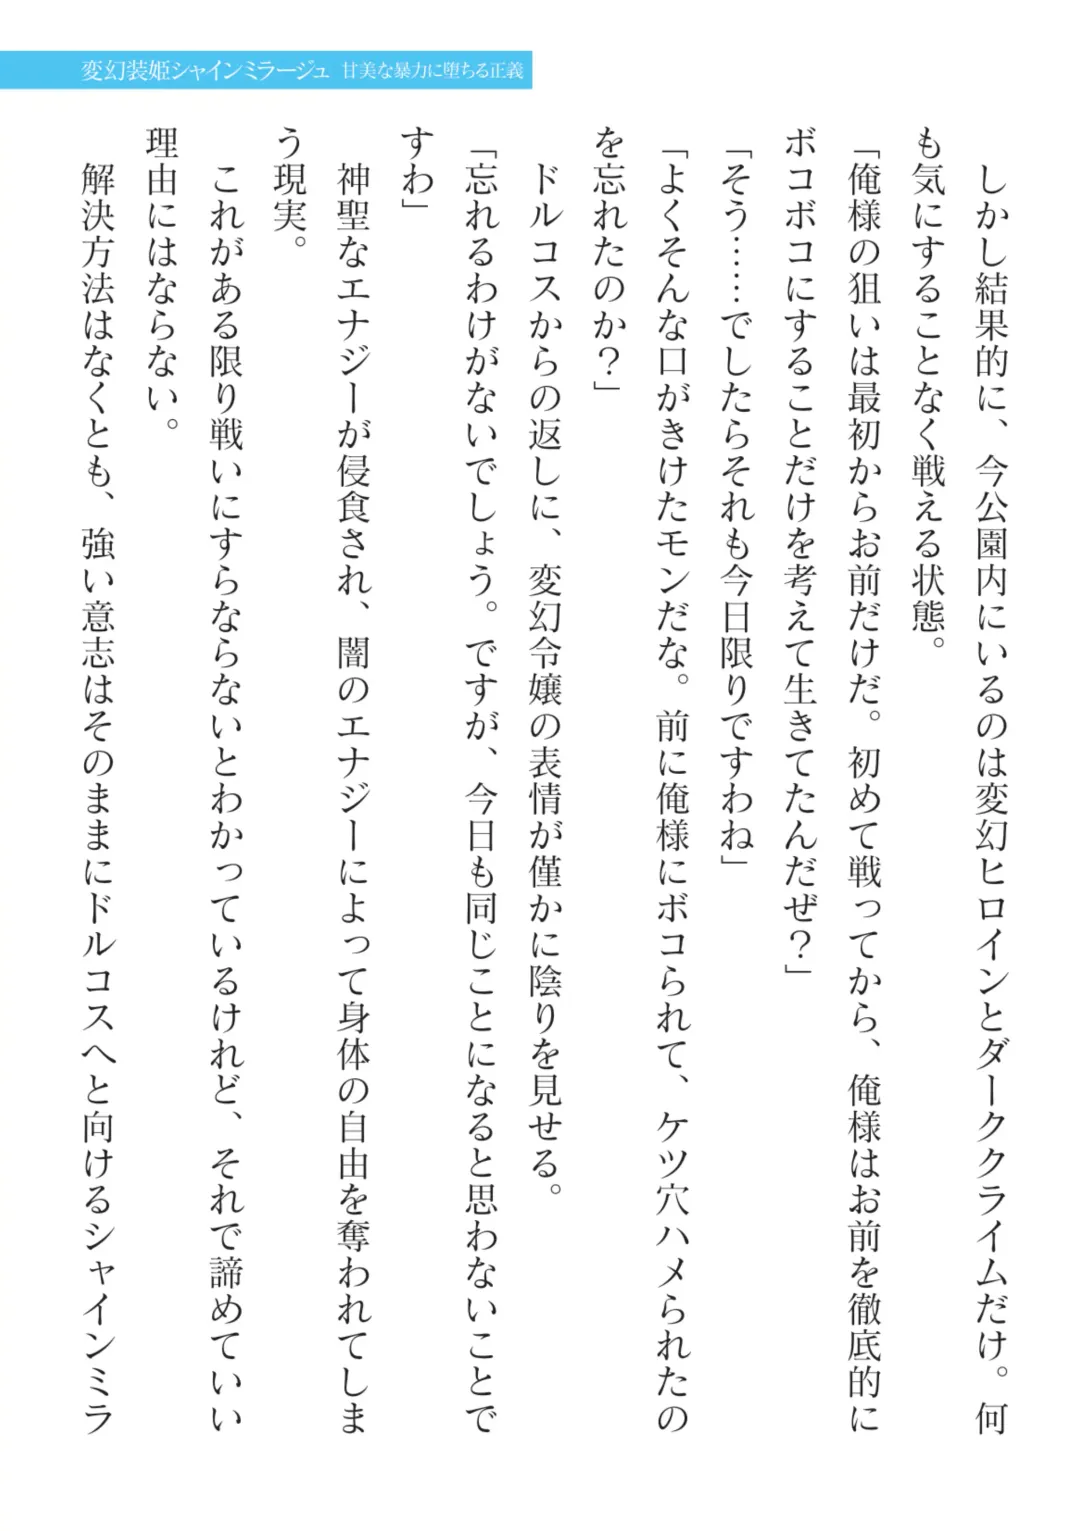 変幻装姫シャインミラージュ 甘美な暴力に堕ちる正義
しかし結果的に、今公園内にいるのは変幻ヒロインとダーククライムだけ。何
も気にすることなく戦える状態。
「俺様の狙いは最初からお前だけだ。初めて戦ってから、俺様はお前を徹底的に
ボコボコにすることだけを考えて生きてたんだぜ？」
「そう……でしたらそれも今日限りですわね」
「よくそんな口がきけたモンだな。前に俺様にボコられて、ケツ穴ハメられたの
を忘れたのか？」
ドルコスからの返しに、変幻令嬢の表情が僅かに陰りを見せる。
「忘れるわけがないでしょう。ですが、今日も同じことになると思わないことで
すわ」
神聖なエナジーが侵食され、闇のエナジーによって身体の自由を奪われてしま
う現実。
これがある限り戦いにすらならないとわかっているけれど、それで諦めていい
理由にはならない。
解決方法はなくとも、強い意志はそのままにドルコスへと向けるシャインミラ